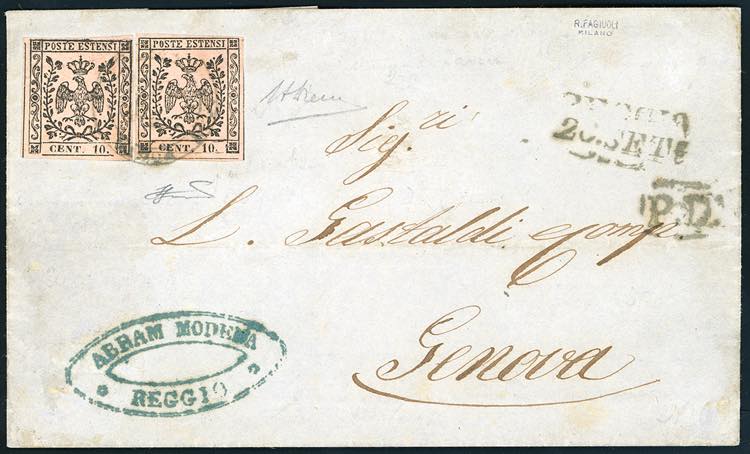 POSTE ESTENSI
CENT. 10.
POSTE ESTENSI
CENT. 10.
R. FAGIUOLI
MILANO
REGGIO
26. SETE
P.D.
Sig.ri
L. Gastaldi e Comp.
Genova
ABRAM MODENA
REGGIO